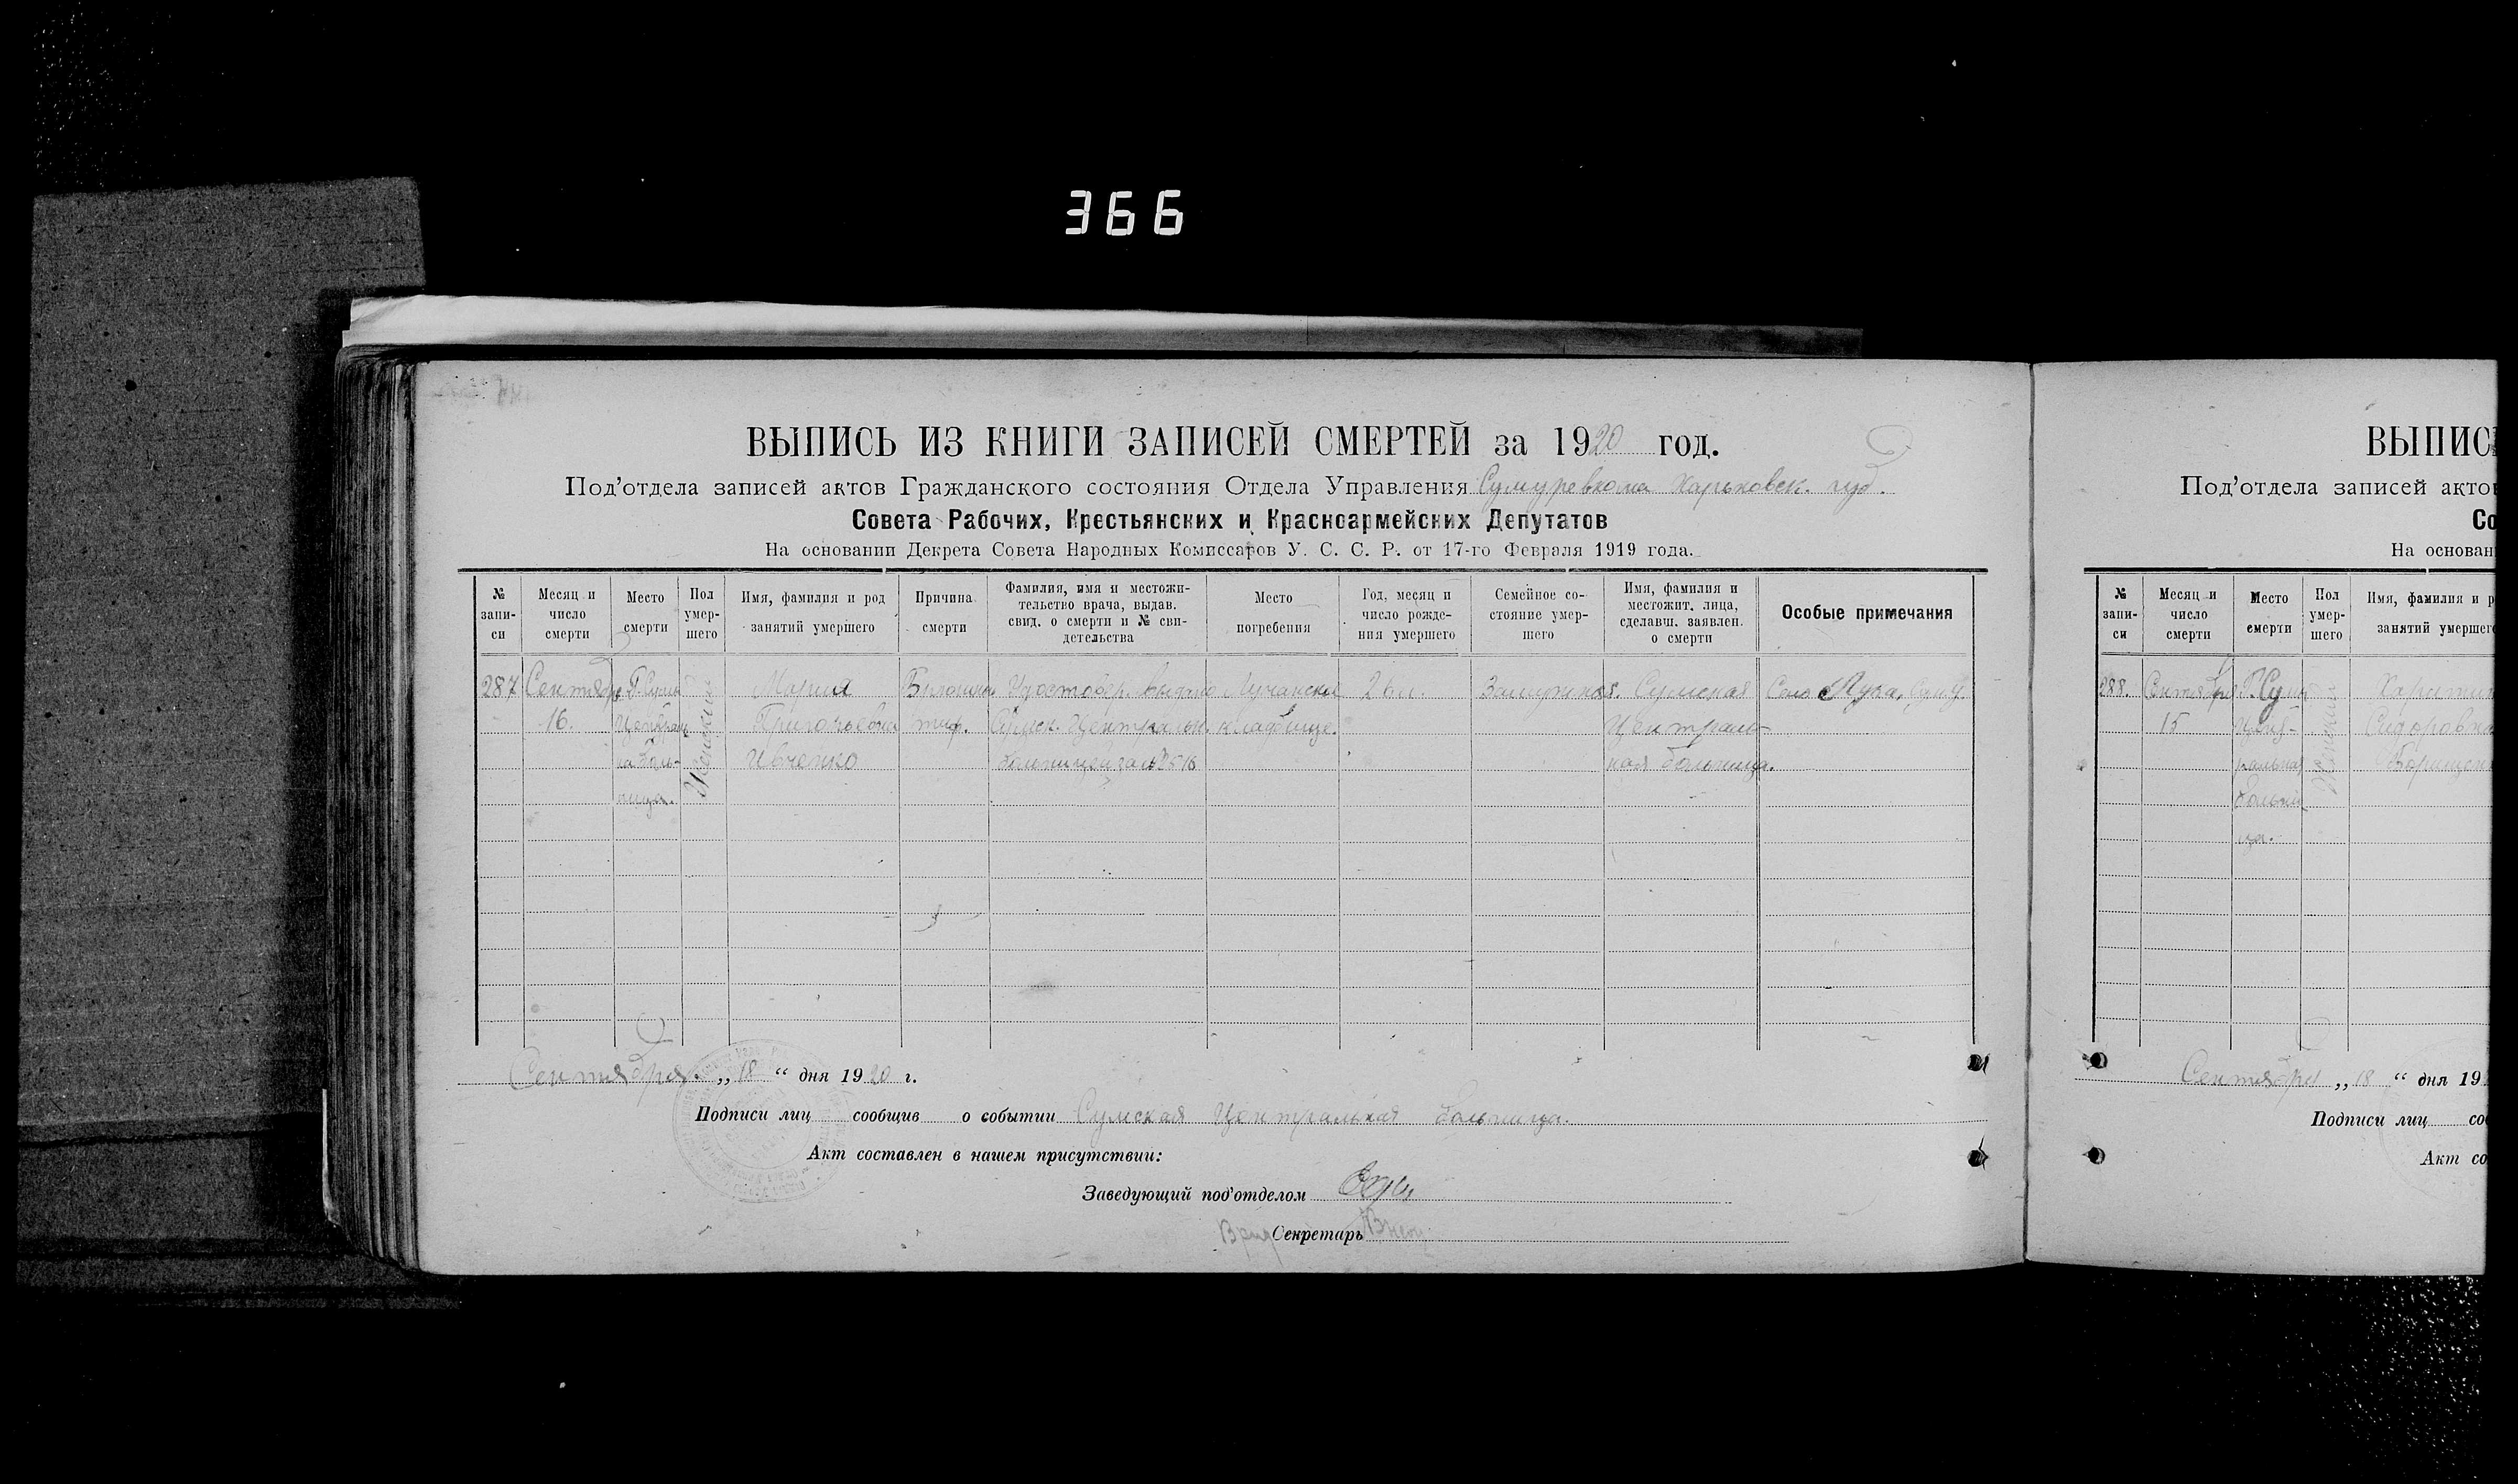 366
ВЫПИСЬ ИЗ КНИГИ ЗАПИСЕЙ СМЕРТЕЙ за 1920 год.
Под'отдела записей актов Гражданского состояния Отдела Управления Сумуревкома Харьковск. губ.
Совета Рабочих, Крестьянских и Красноармейских Депутатов
На основании Декрета Совета Народных Комиссаров У. С. С. Р. от 17-го Февраля 1919 года.
№ запи-си
Месяц и число смерти
Место смерти
Пол умер-шего
Имя, фамилия и род занятий умершего
Причина смерти
Фамилия, имя и местожи-тельство врача, выдав. свид. о смерти и № сви-детельства
Место погребения
Год, месяц и число рожде-ния умершего
Семейное со-стояние умер-шего
Имя, фамилия и местожит. лица, сделавш. заявлен. о смерти
Особые примечания
287
Сентября
16.
Г. Сумы
больница.
Женский
Мария
Григорьевна
Ивченко
тиф.
Удостовер. выдано
Сумск. Центральн.
больницей за №2516
Лучанское
кладбище.
26 л
Замужняя.
Сумская
Централь-
ная больница.
Село Лука, Сум. у.
Сентября „ 18 “ дня 1920 г.
Подписи лиц сообщив о событии Сумская Центральная больница.
Акт составлен в нашем присутствии:
Заведующий под'отделом
Врид Секретарь
ВЫПИС
Под'отдела записей акто
Со
На основан
№ запи-си
Месяц и число смерти
Место смерти
Пол умер-шего
Имя, фамилия и р
занятий умершег
288.
Сентября
15
Г. Сумы
Цент-
ральная
больни-
ца.
Женский
Сидоровна
Сентября „ 18 “ дня 19
Подписи лиц соо
Акт со